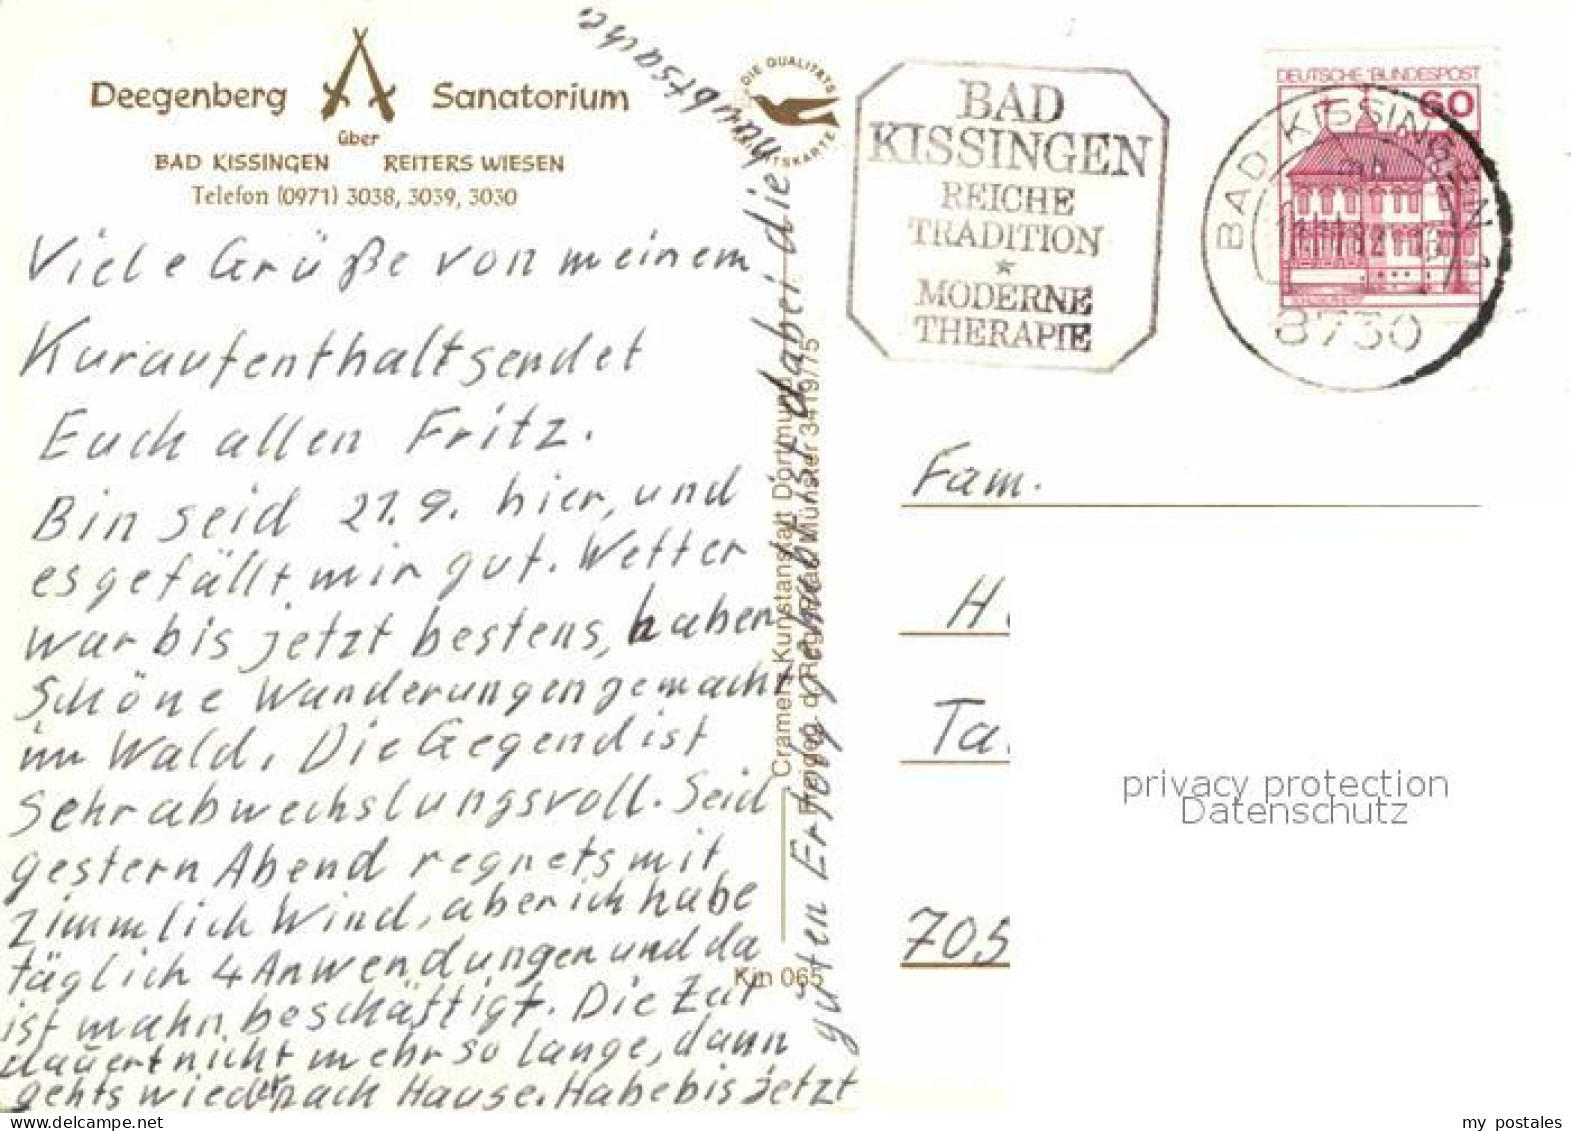 Deegenberg Sanatorium
über
BAD KISSINGEN REITERS WIESEN
Telefon (0971) 3038, 3039, 3030
Viele Grüße von meinem
Kuraufenthalt sendet
Euch allen Fritz.
Bin seid 21.9. hier, und
es gefällt mir gut. Wetter
war bis jetzt bestens, haben
Schöne Wanderungen gemacht
im Wald. Die Gegend ist
Sehr abwechslungsvoll. Seid
gestern Abend regnets mit
zimmlich Wind, aber ich habe
täglich 4 Anwendungen und da
ist mahn beschäftigt. Die Zeit
dauert nicht mehr so lange, dann
gehts wieder nach Hause. Habe bis jetzt
guten Erfolg gehabt ist dabei die
Hauptsache.
DIE QUALITÄTS
Cramers Kunstanstalt Dortmund
Kin 065
BAD
KISSINGEN
REICHE
TRADITION
MODERNE
THERAPIE
DEUTSCHE BUNDESPOST
60
BAD KISSINGEN 1
8730
Fam.
H
Ta
705
privacy protection
Datenschutz
my postales